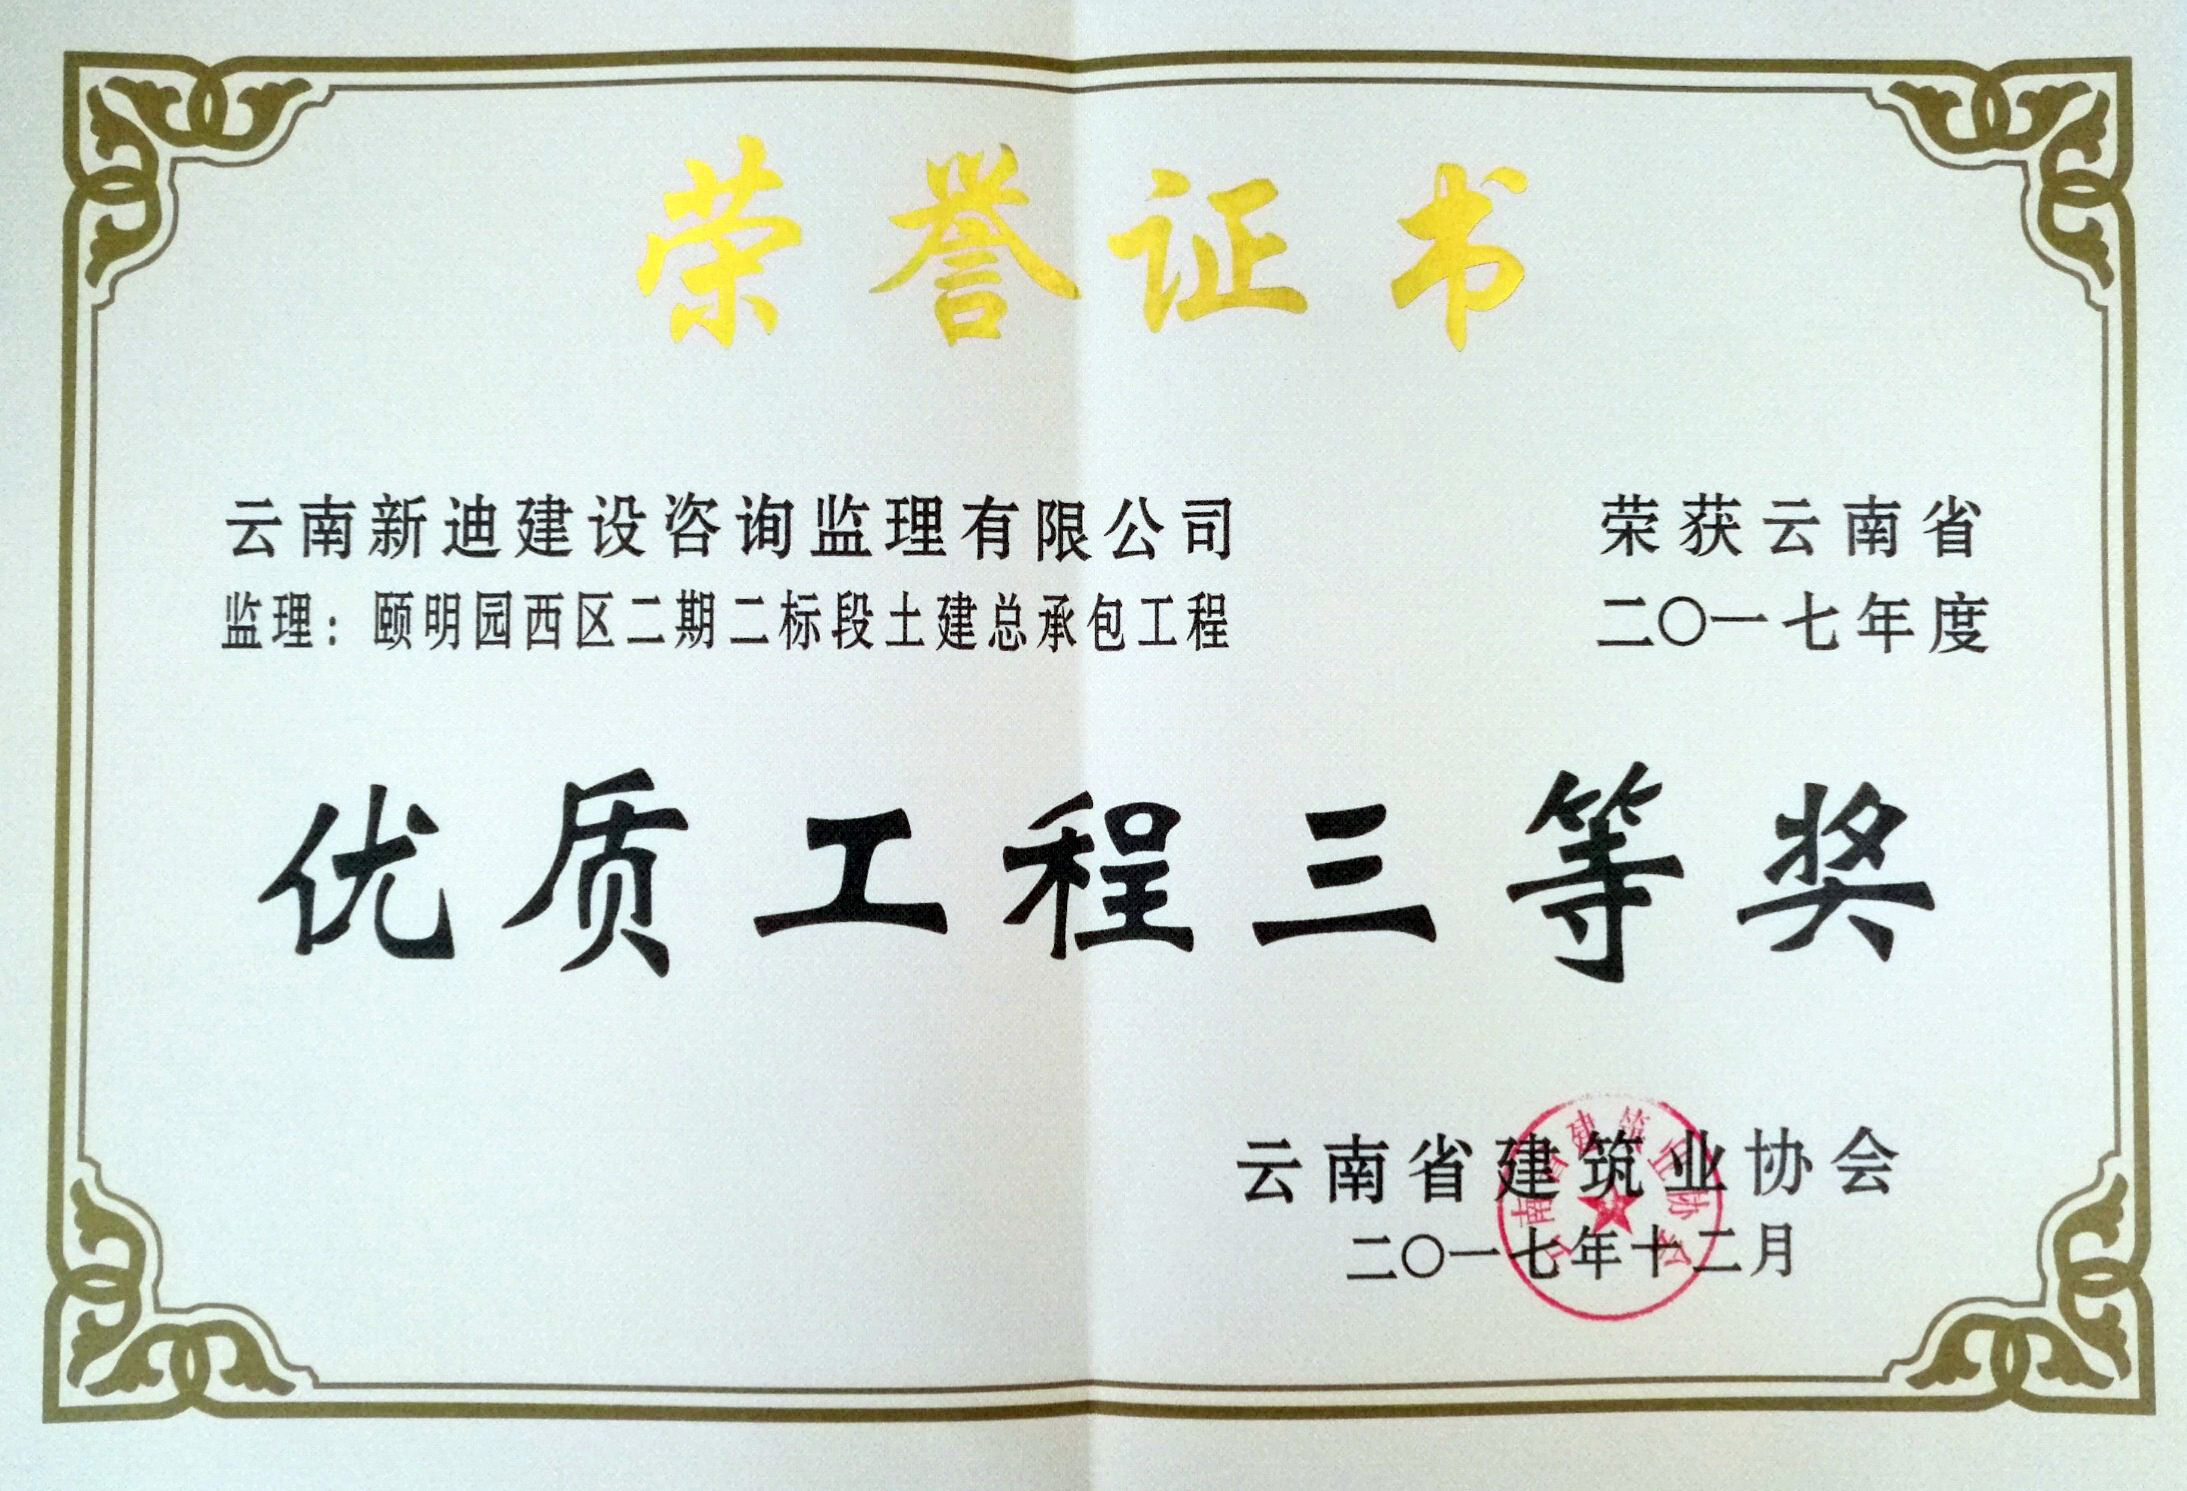 荣誉证书
云南新迪建设咨询监理有限公司 荣获云南省
监理：颐明园西区二期二标段土建总承包工程 二〇一七年度
优质工程三等奖
云南省建筑业协会
二〇一七年十二月
云南省建筑业协会